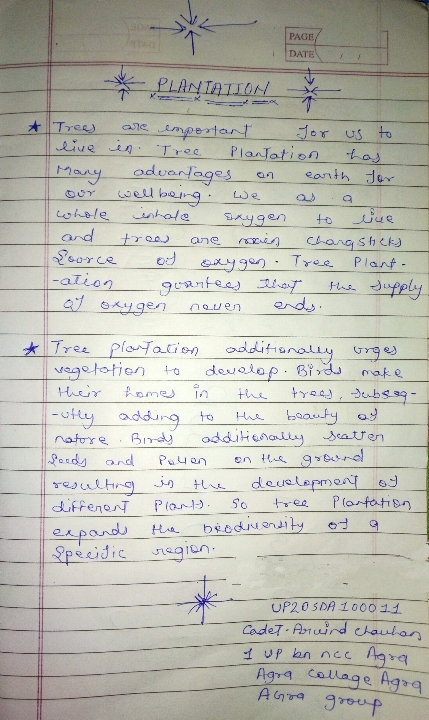 PAGE
DATE
PLANTATION
★ Trees are important for us to
live in. Tree Plantation has
Many advantages on earth for
our wellbeing. We as a
whole inhale oxygen to live
and trees are main
Source of oxygen. Tree Plant-
-ation gurantees that the supply
of oxygen never ends.
★ Tree plantation additionally urges
vegetation to develop. Birds make
their homes in the trees, subseq-
-utly adding to the beauty of
nature. Birds additionally scatter
Seeds and Pollen on the ground
resulting in the development of
different Plants. So tree Plantation
expands the biodiversity of a
Specific region.
UP20SDA100011
Cadet. Arvind chauhan
1 UP bn ncc Agra
Agra collage Agra
Agra group